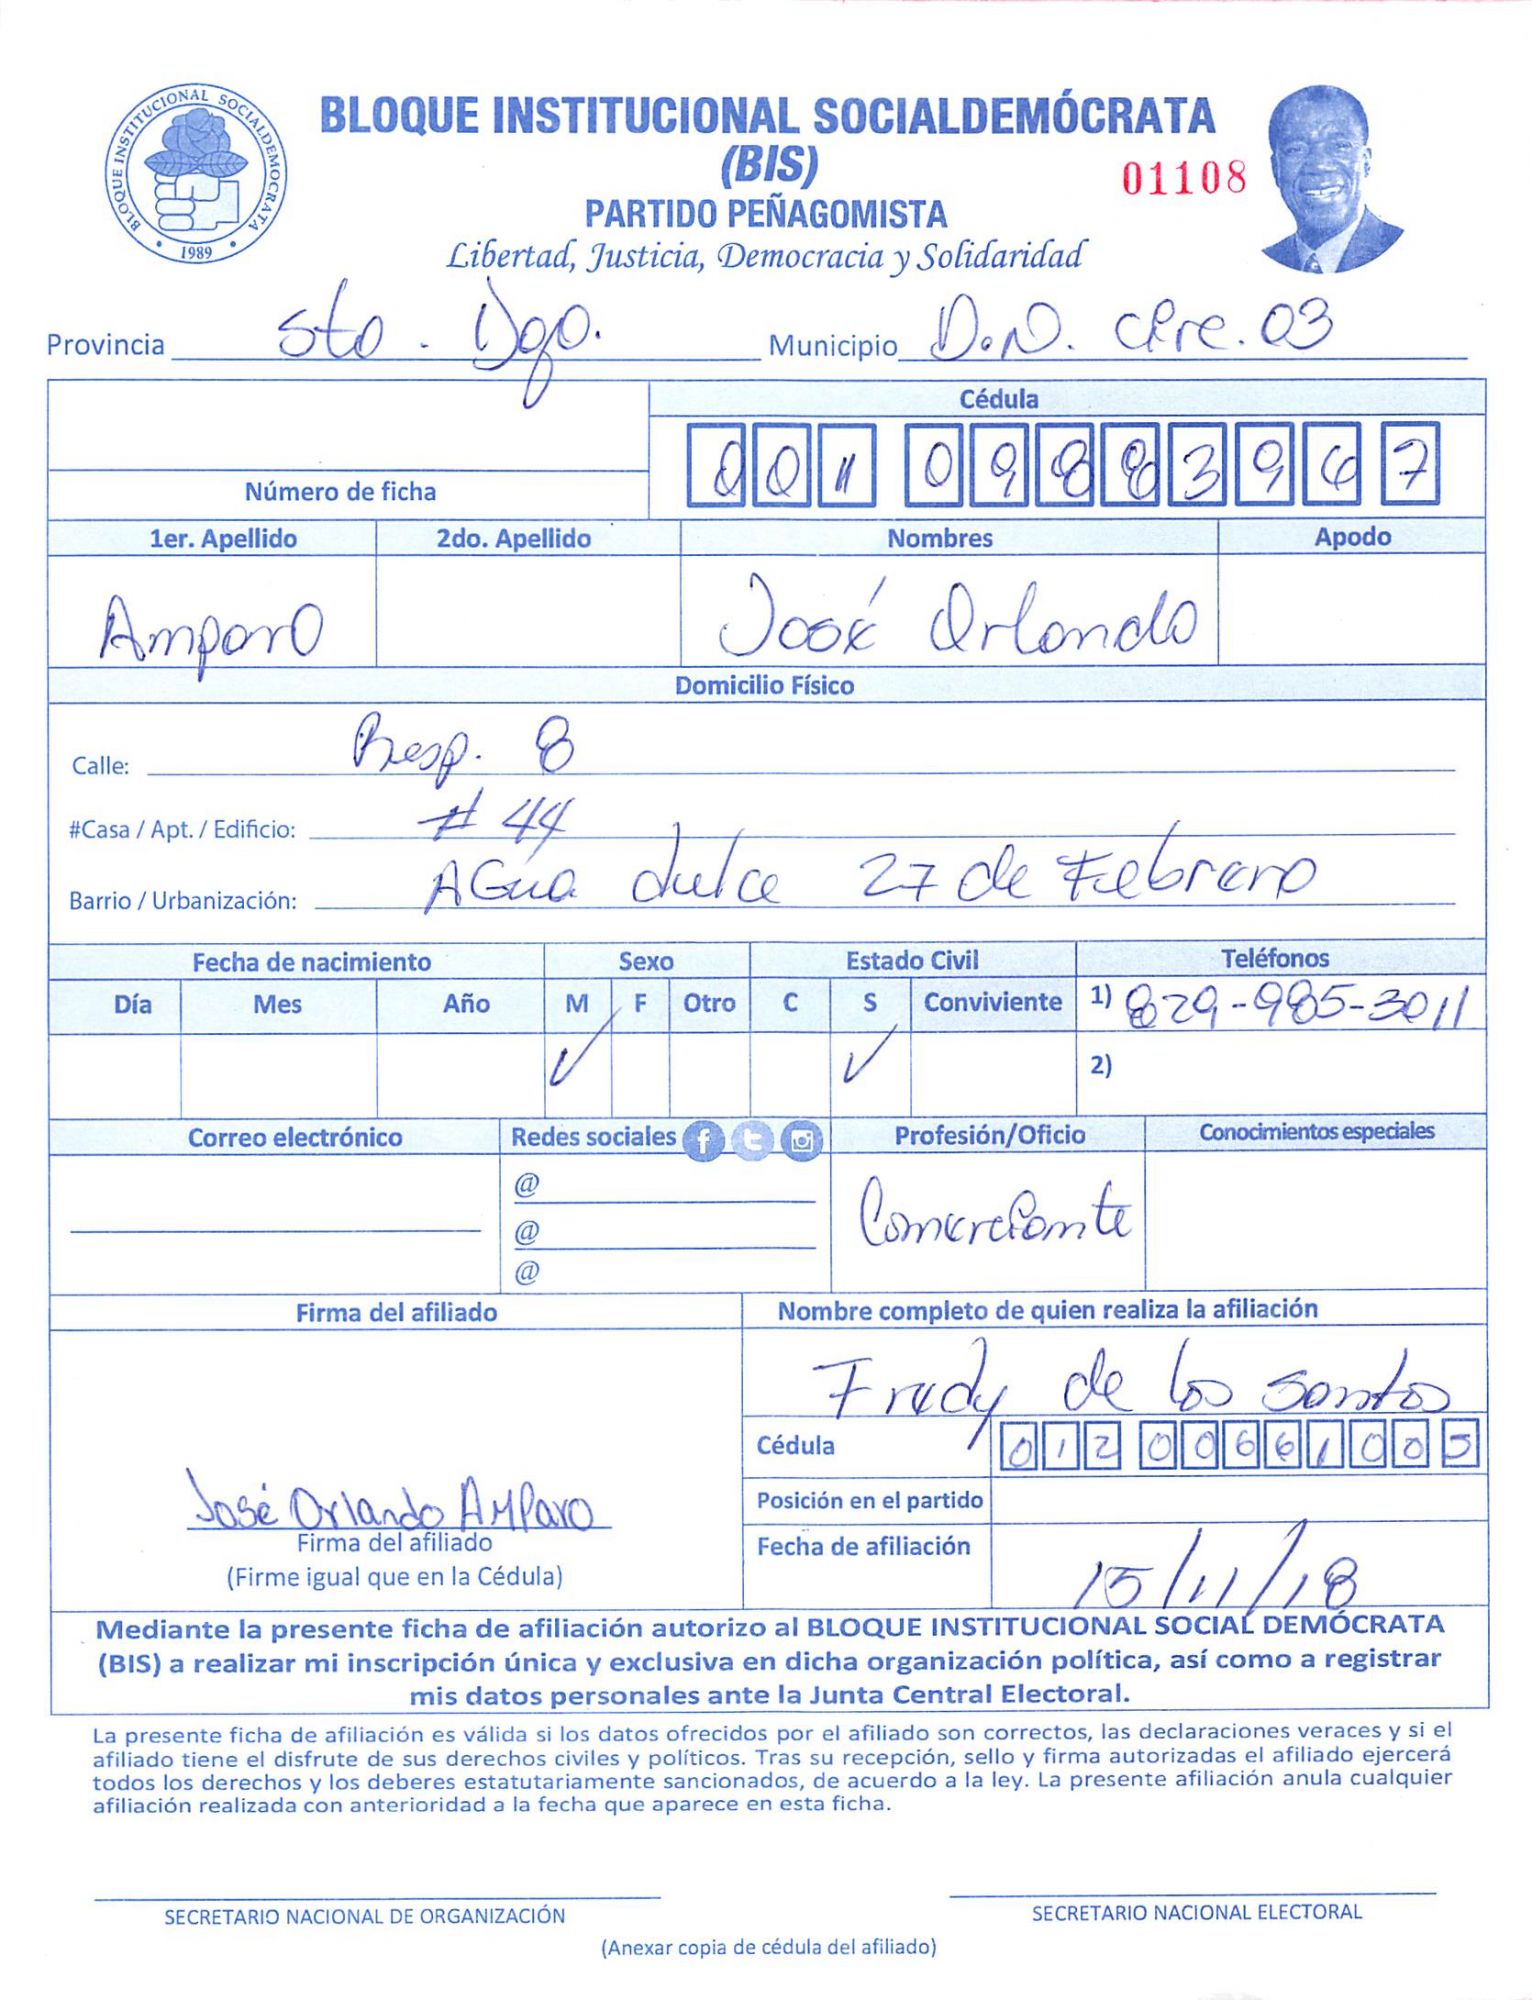 BLOQUE INSTITUCIONAL SOCIALDEMOCRATA
1989
BLOQUE INSTITUCIONAL SOCIALDEMÓCRATA
(BIS)
01108
PARTIDO PEÑAGOMISTA
Libertad, Justicia, Democracia y Solidaridad
Provincia Sto. Dgo. Municipio D.N. Circ. 03
Cédula
001 0988396 7
Número de ficha
1er. Apellido 2do. Apellido Nombres Apodo
Amparo José Orlando
Domicilio Físico
Calle: Resp. 8
#Casa / Apt. / Edificio: # 44
Barrio / Urbanización: AGua dulce 27 de Febrero
Fecha de nacimiento Sexo Estado Civil Teléfonos
Día Mes Año M F Otro C S Conviviente 1) 829-985-3011
✓ ✓ 2)
Correo electrónico Redes sociales Profesión/Oficio Conocimientos especiales
@
@
@
Comerciante
Firma del afiliado Nombre completo de quien realiza la afiliación
Fredy de los Santos
Cédula 012 0066100 5
Posición en el partido
José Orlando AMParo
Firma del afiliado
(Firme igual que en la Cédula)
Fecha de afiliación 15/11/18
Mediante la presente ficha de afiliación autorizo al BLOQUE INSTITUCIONAL SOCIAL DEMÓCRATA
(BIS) a realizar mi inscripción única y exclusiva en dicha organización política, así como a registrar
mis datos personales ante la Junta Central Electoral.
La presente ficha de afiliación es válida si los datos ofrecidos por el afiliado son correctos, las declaraciones veraces y si el
afiliado tiene el disfrute de sus derechos civiles y políticos. Tras su recepción, sello y firma autorizadas el afiliado ejercerá
todos los derechos y los deberes estatutariamente sancionados, de acuerdo a la ley. La presente afiliación anula cualquier
afiliación realizada con anterioridad a la fecha que aparece en esta ficha.
SECRETARIO NACIONAL DE ORGANIZACIÓN SECRETARIO NACIONAL ELECTORAL
(Anexar copia de cédula del afiliado)